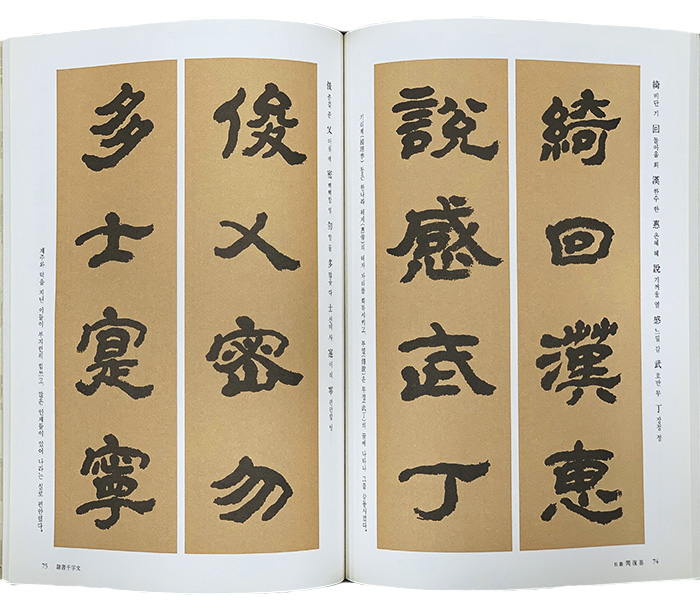 綺 비단 기 回 돌아올 회 漢 한수 한 惠 은혜 혜 說 기꺼울 열 感 느낄 감 武 호반 무 丁 장정 정
綺回漢惠
說感武丁
기리계(綺里季) 등은 한나라 혜제(惠帝)의 태자 자리를 회복시켰고, 부열(傅說)은 무정(武丁)의 꿈에 나타나 그를 감동시켰다.
74
俊 준걸 준 乂 어질 예 密 빽빽할 밀 勿 말 물 多 많을 다 士 선비 사 寔 이 식 寧 편안할 녕
俊乂密勿
多士寔寧
재주와 덕을 지닌 이들이 부지런히 힘쓰고, 많은 인재들이 있어 나라는 실로 편안했다.
75 隷書千字文